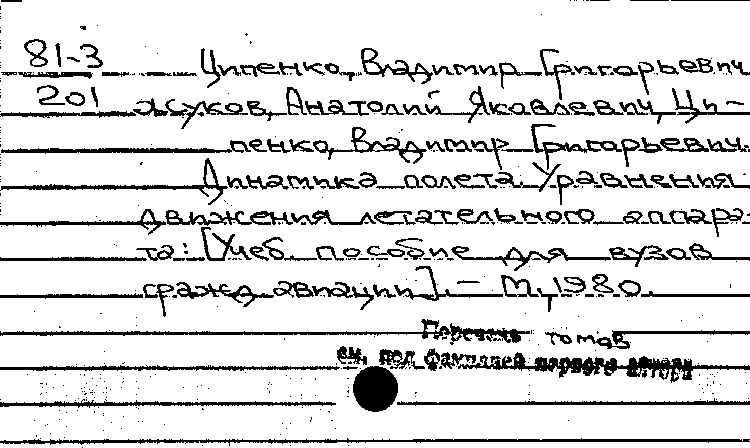 81-3
201
Ципенко, Владимир Григорьевич
Жуков, Анатолий Яковлевич, Ци-
пенко, Владимир Григорьевич.
Динамика полета. Уравнения
движения летательного аппара-
та: [Учеб. пособие для вузов
гражд. авиации]. — М., 1980.
Перечень томов
см. под фамилией первого автора